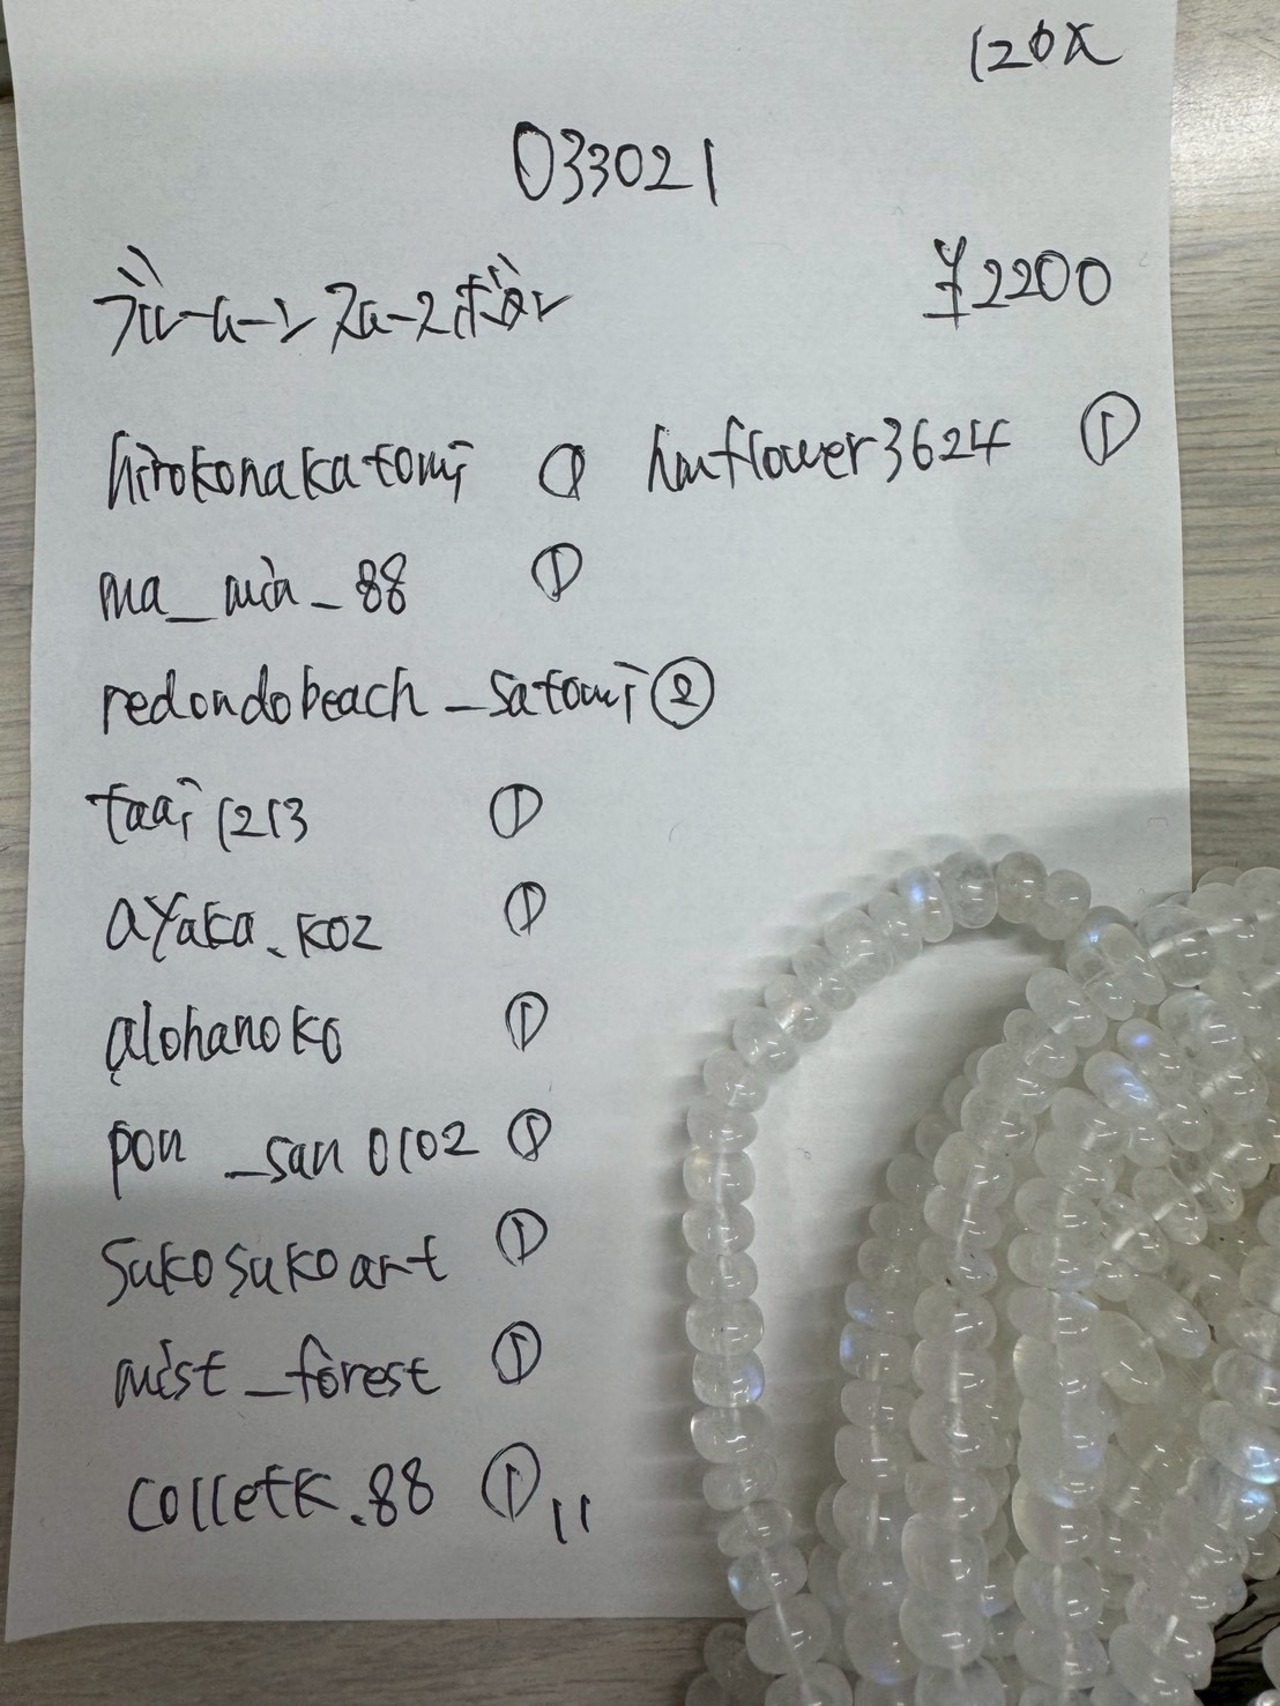 033021
¥2200
hirokonakatomi ① hmflower3624 ①
ma_mia_88 ①
redondobeach_satomi ②
taai1213 ①
ayaka.koz ①
alohanoko ①
pon_san0102 ①
sukosukoart ①
mist_forest ①
colletk.88 ① 11